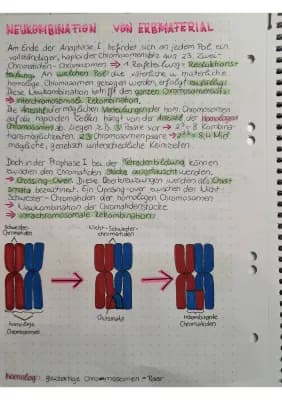 NEUKOMBINATION VON ERBMATERIAL
Am Ende der Anaphase I befindet sich an jedem Pol ein
vollständiger, haploider Chromosomensatz aus 23 Zwei-
Chromatiden-Chromosomen → 1. Reifeteilung = Reduktions-
teilung. An welchen Pol die väterliche u. materliche
homologe Chromosomen gezogen werden, erfolgt zufällig.
Diese Neukombination betrifft den ganzen Chromosomensatz
→ interchromosomale Rekombination.
Die Anzahl der möglichen Verteilungen der hom. Chromosomen
auf die haploiden Zellen hängt von der Anzahl der homologen
Chromosomen ab. Liegen z.B. 3 Paare vor → 2³ = 8 Kombina-
tionsmöglichkeiten. 23 Chromosomenpaare → 2²³ = 8,4 Mio
mögliche, genetisch unterschiedliche Keimzellen.
Doch in der Prophase I bei der Tetradenbildung können
zwischen den Chromatiden Stücke ausgetauscht werden.
→ Crossing-Over. Diese Überkreuzungen werden als Chias-
mata bezeichnet. Ein Crossing-over zwischen den Nicht-
Schwester-Chromatiden der homologen Chromosomen
→ Neukombination der Chromatidenstücke
→ intrachromosomale Rekombination.
Schwester-
Chromatiden
Nicht-Schwester-
chromatiden
homologe
Chromosomen
Chiasmata
rekombinante
Chromatiden
homolog: gleichartige Chromosomen-Paar